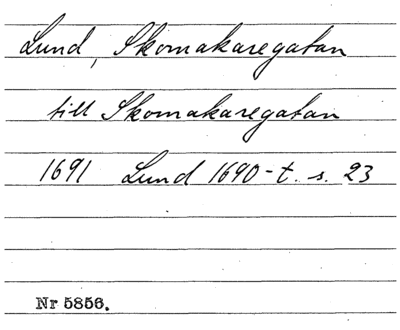 Lund, Skomakaregatan
till Skomakaregatan
1691 Lund 1690-t. s. 23
Nr 5856.